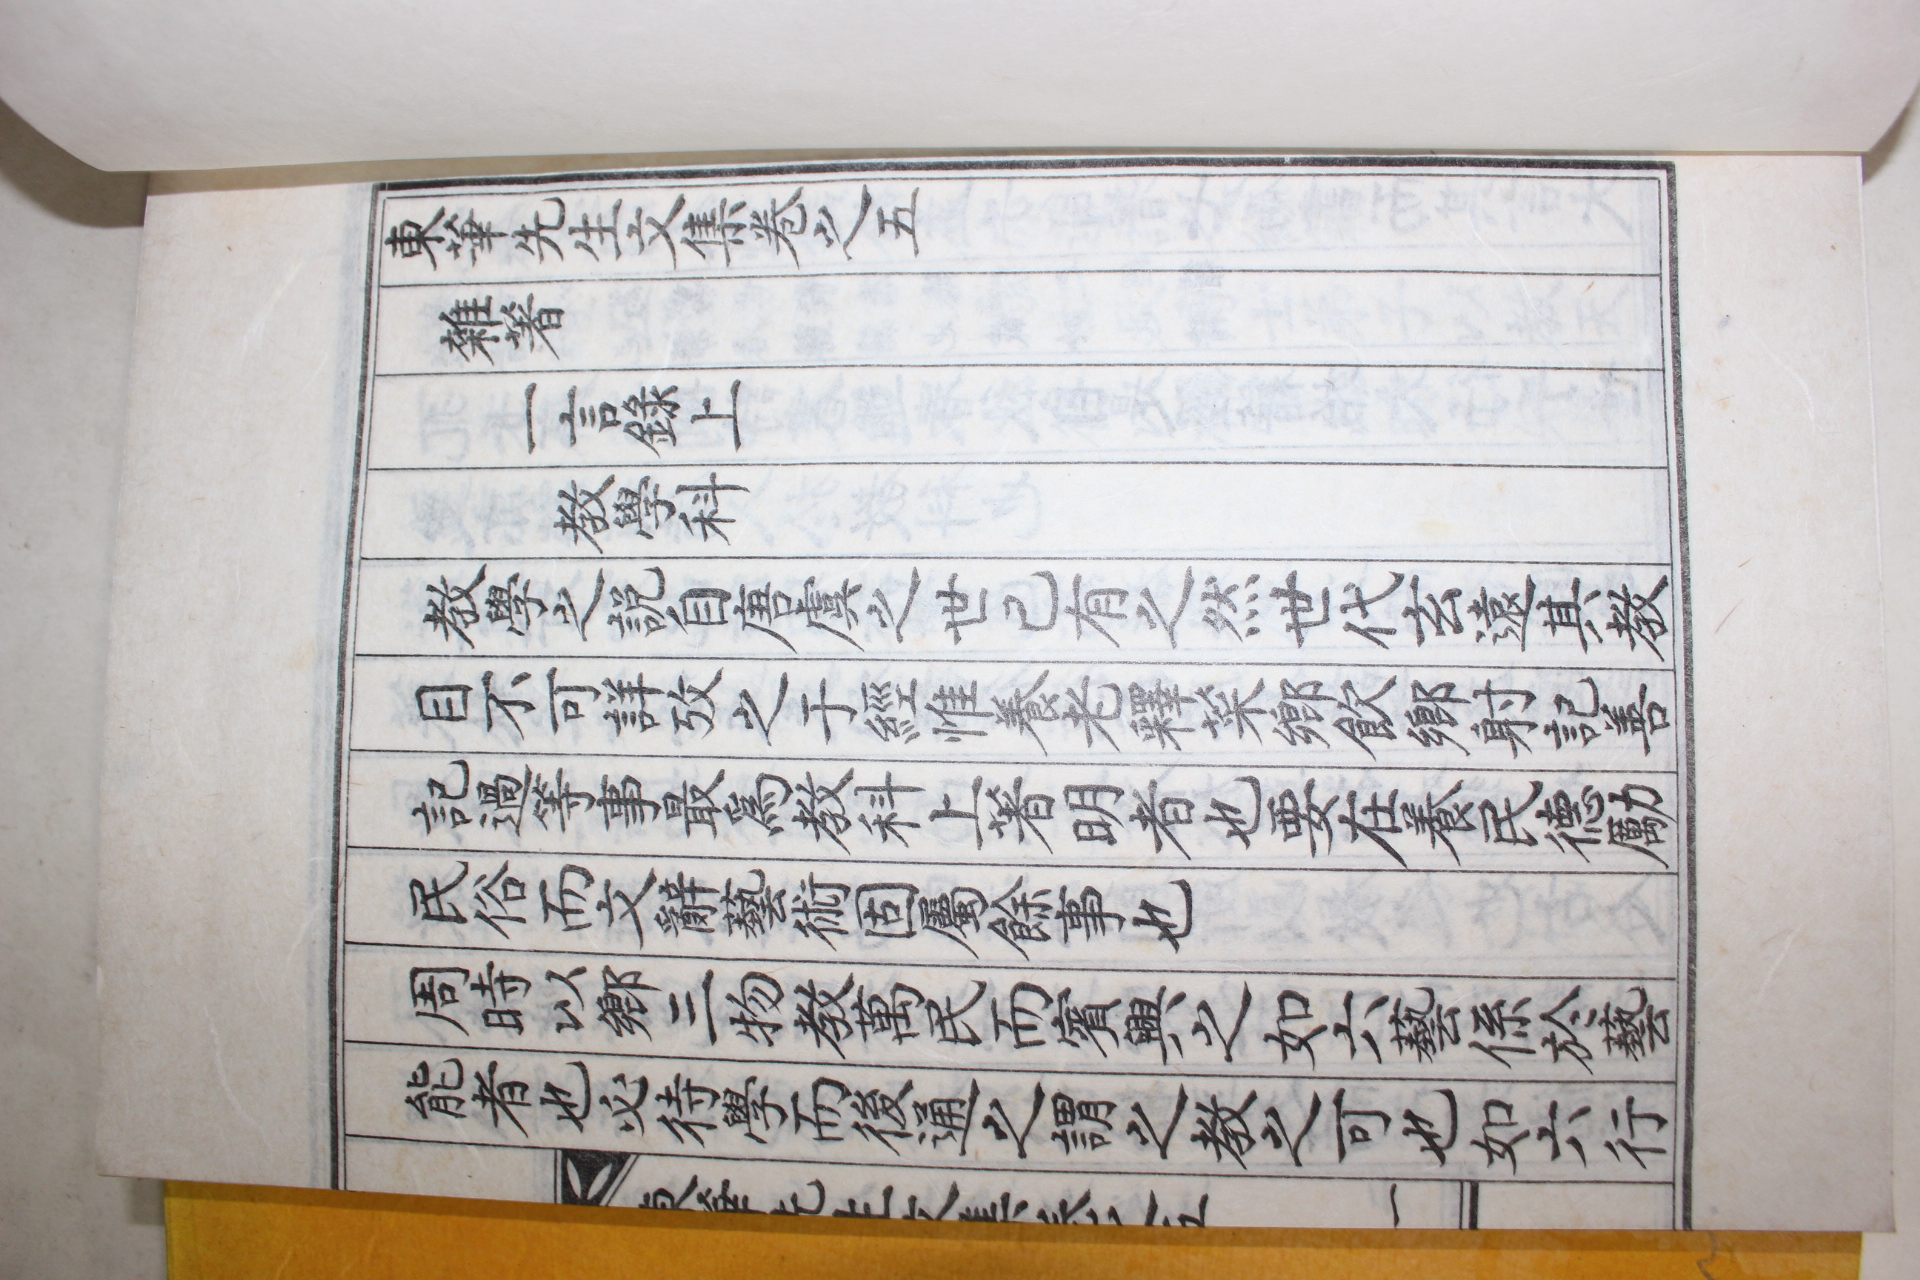 東葎先生文集卷之五
雜著
一言錄上
敎學科
敎學之說自唐虞之世已有之然世代玄遠其敎
目不可詳攷之于經惟養老釋菜鄕飮鄕射記善
記過等事最爲敎科上著明者也要在養民德勵
民俗而文辭藝術固屬餘事也
周時以鄕三物敎萬民而賓興之如六藝係於藝
能者也必待學而後通之謂之敎之可也如六行
先生文集卷之五 一